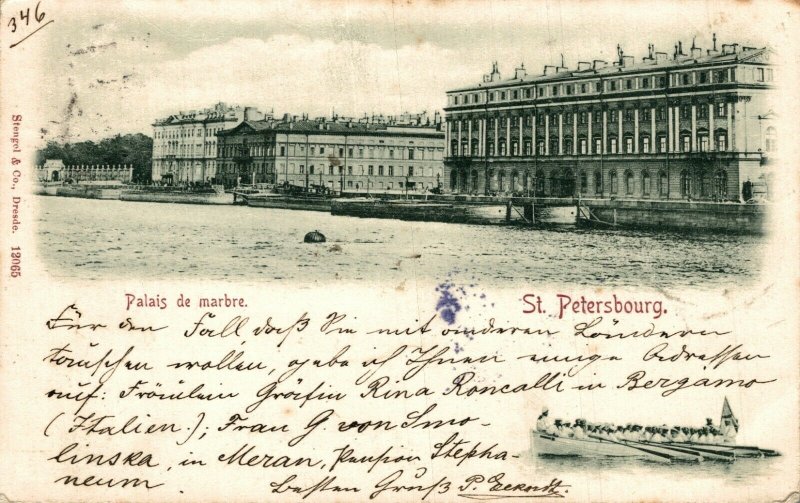 346
Stengel & Co., Dresde. 12065
Palais de marbre.
St. Petersbourg.
Für den Fall daß Sie mit anderen Ländern
tauschen wollen, gebe ich Ihnen einige Adressen
auf: Fräulein Gräfin Rina Roncalli in Bergamo
(Italien.); Frau G. von Smo-
linska, in Meran, Pension Stepha-
neum. Besten Gruß P.